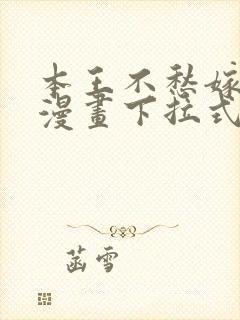 本王不愁嫁
漫畫下拉式
菡雪